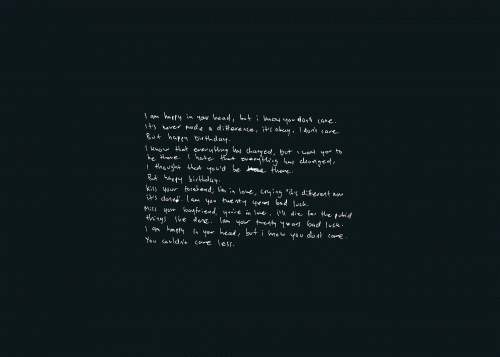 I am happy in your head, but i know you don't care.
it's never made a difference, it's okay, I don't care
But happy birthday.
I know that everything has changed, but i want you to
be there. I hate that everything has changed,
I thought that you'd be there.
But happy birthday.
Kiss your forehead, I'm in love, crying "it's different now
it's done". I am you twenty years bad luck.
Miss your boyfriend, you're in love, i'll die for the
things she done. I am your twenty years bad luck.
I am happy in your head, but i know you don't care.
You couldn't care less.